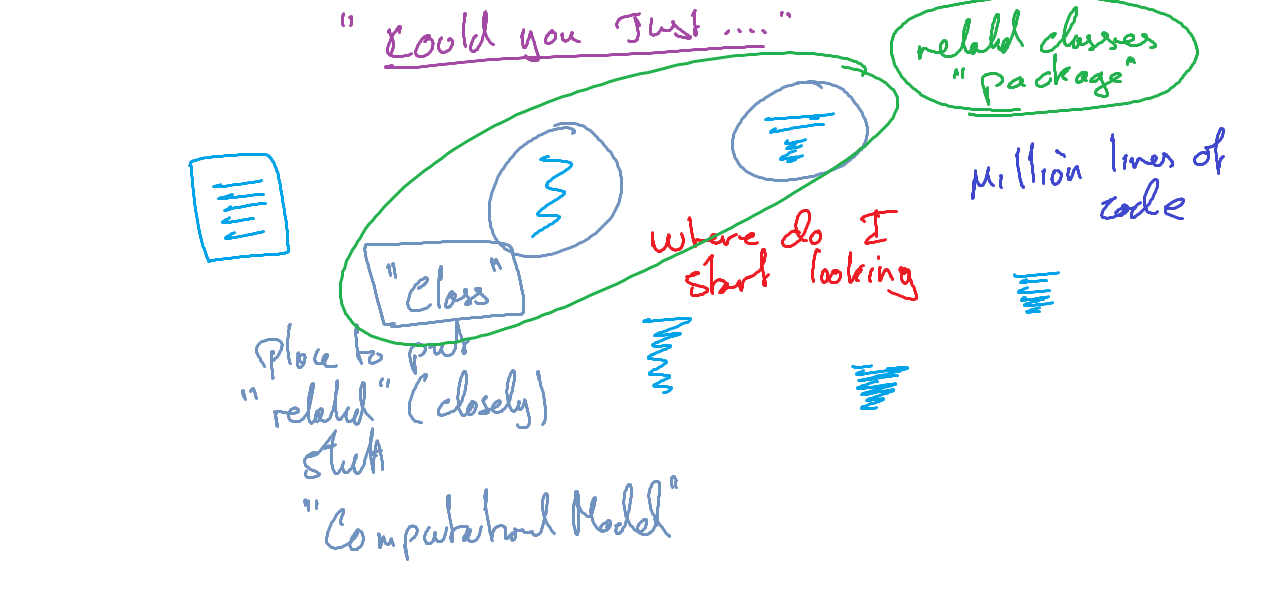 " Could you Just .... "
related classes
"package"
Million lines of
code
where do I
start looking
"Class"
place to put
"related" (closely)
stuff
"Computational Model"